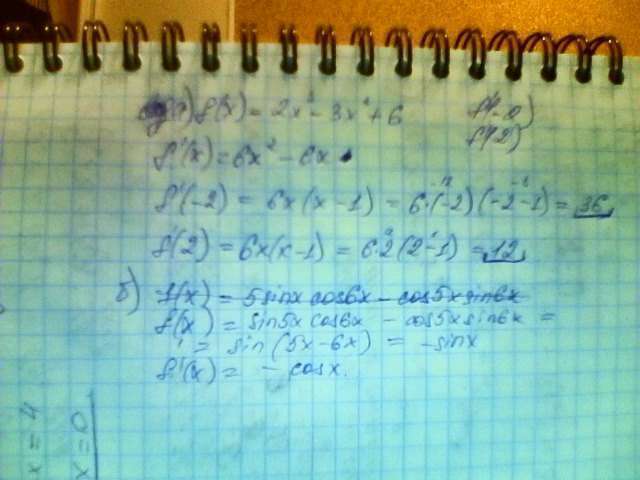 а) f(x) = 2x³ - 3x² + 6 f'(-2)
f'(2)
f'(x) = 6x² - 6x
f'(-2) = 6x(x-1) = 6·(-2)(-2-1) = 36
f'(2) = 6x(x-1) = 6·2(2-1) = 12
б) f(x) = 5sinx cos6x - cos5x sin6x
f(x) = sin5x cos6x - cos5x sin6x =
= sin(5x-6x) = -sinx
f'(x) = - cosx.
x = 4
x = 0